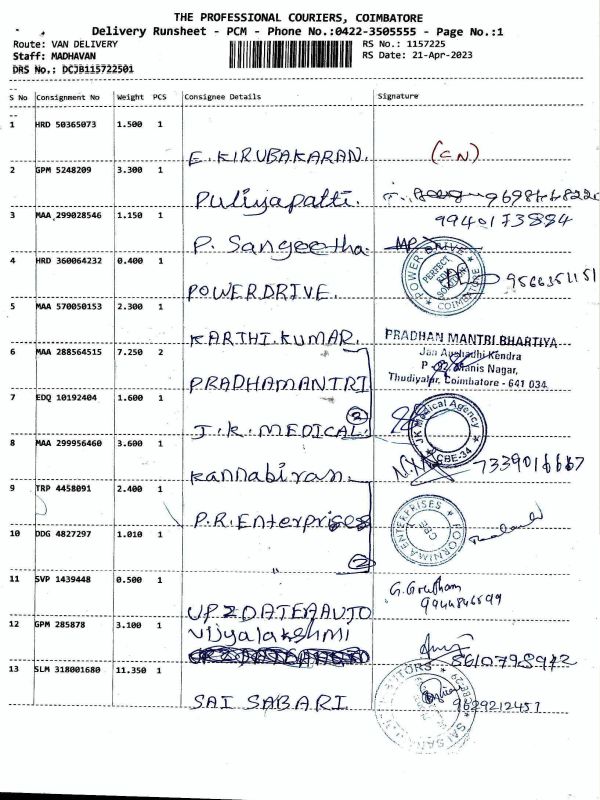 THE PROFESSIONAL COURIERS, COIMBATORE
Delivery Runsheet - PCM - Phone No.:0422-3505555 - Page No.:1
Route: VAN DELIVERY RS No.: 1157225
Staff: MADHAVAN RS Date: 21-Apr-2023
DRS No.: DCJB115722501
S No Consignment No Weight PCS Consignee Details Signature
1 HRD 50365073 1.500 1
E. KIRUBAKARAN. (CN)
2 GPM 5248209 3.300 1
Puliyapatti.
3 MAA 299028546 1.150 1 9940173884
P. Sangeetha.
4 HRD 360064232 0.400 1
POWER DRIVE PERFECT COIMBATORE
POWERDRIVE. 9566351151
5 MAA 570050153 2.300 1
KARTHI.KUMAR. PRADHAN MANTRI BHARTIYA
6 MAA 288564515 7.250 2 Jan Aushadhi Kendra
PRADHAMANTRI Manis Nagar,
Thudiyalur, Coimbatore - 641 034.
7 EDQ 10192404 1.600 1
J.K. MEDICAL. (2) JK Medical Agency CBE-34
8 MAA 299956460 3.600 1
Kannabiran. 7339016667
9 TRP 4458091 2.400 1
P.R. Enterprises POORNIMA ENTERPRISES CBE
10 DDG 4827297 1.010 1
" (2)
11 SVP 1439448 0.500 1
G. Goutham
UP2DATEAAUTO 9944846599
12 GPM 285878 3.100 1
Vijyalakshmi
8610798972
13 SLM 318001680 11.350 1
SAI SABARI 9629212457